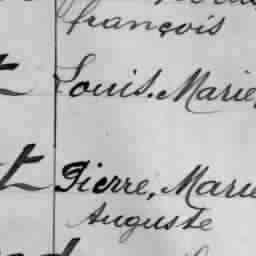 françois
Louis. Marie,
Pierre, Marie
Auguste